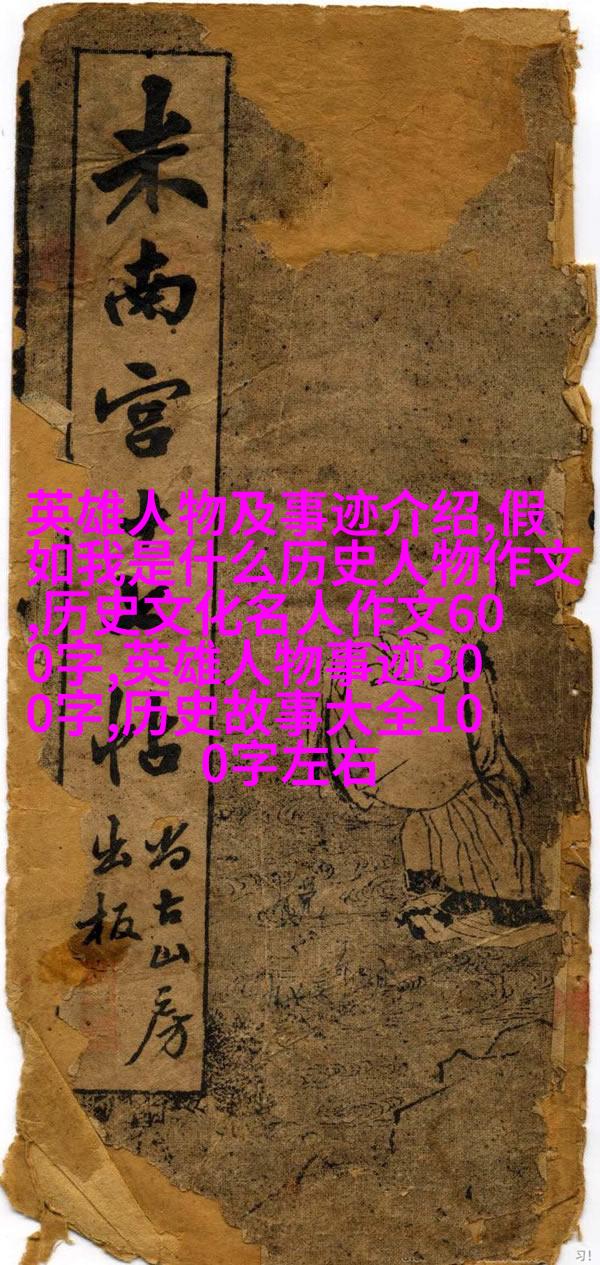 米南宫
帖
尚古山房
出板
英雄人物及事迹介绍,假
如我是什么历史人物作文
,历史文化名人作文60
0字,英雄人物事迹30
0字,历史故事大全10
0字左右
习!